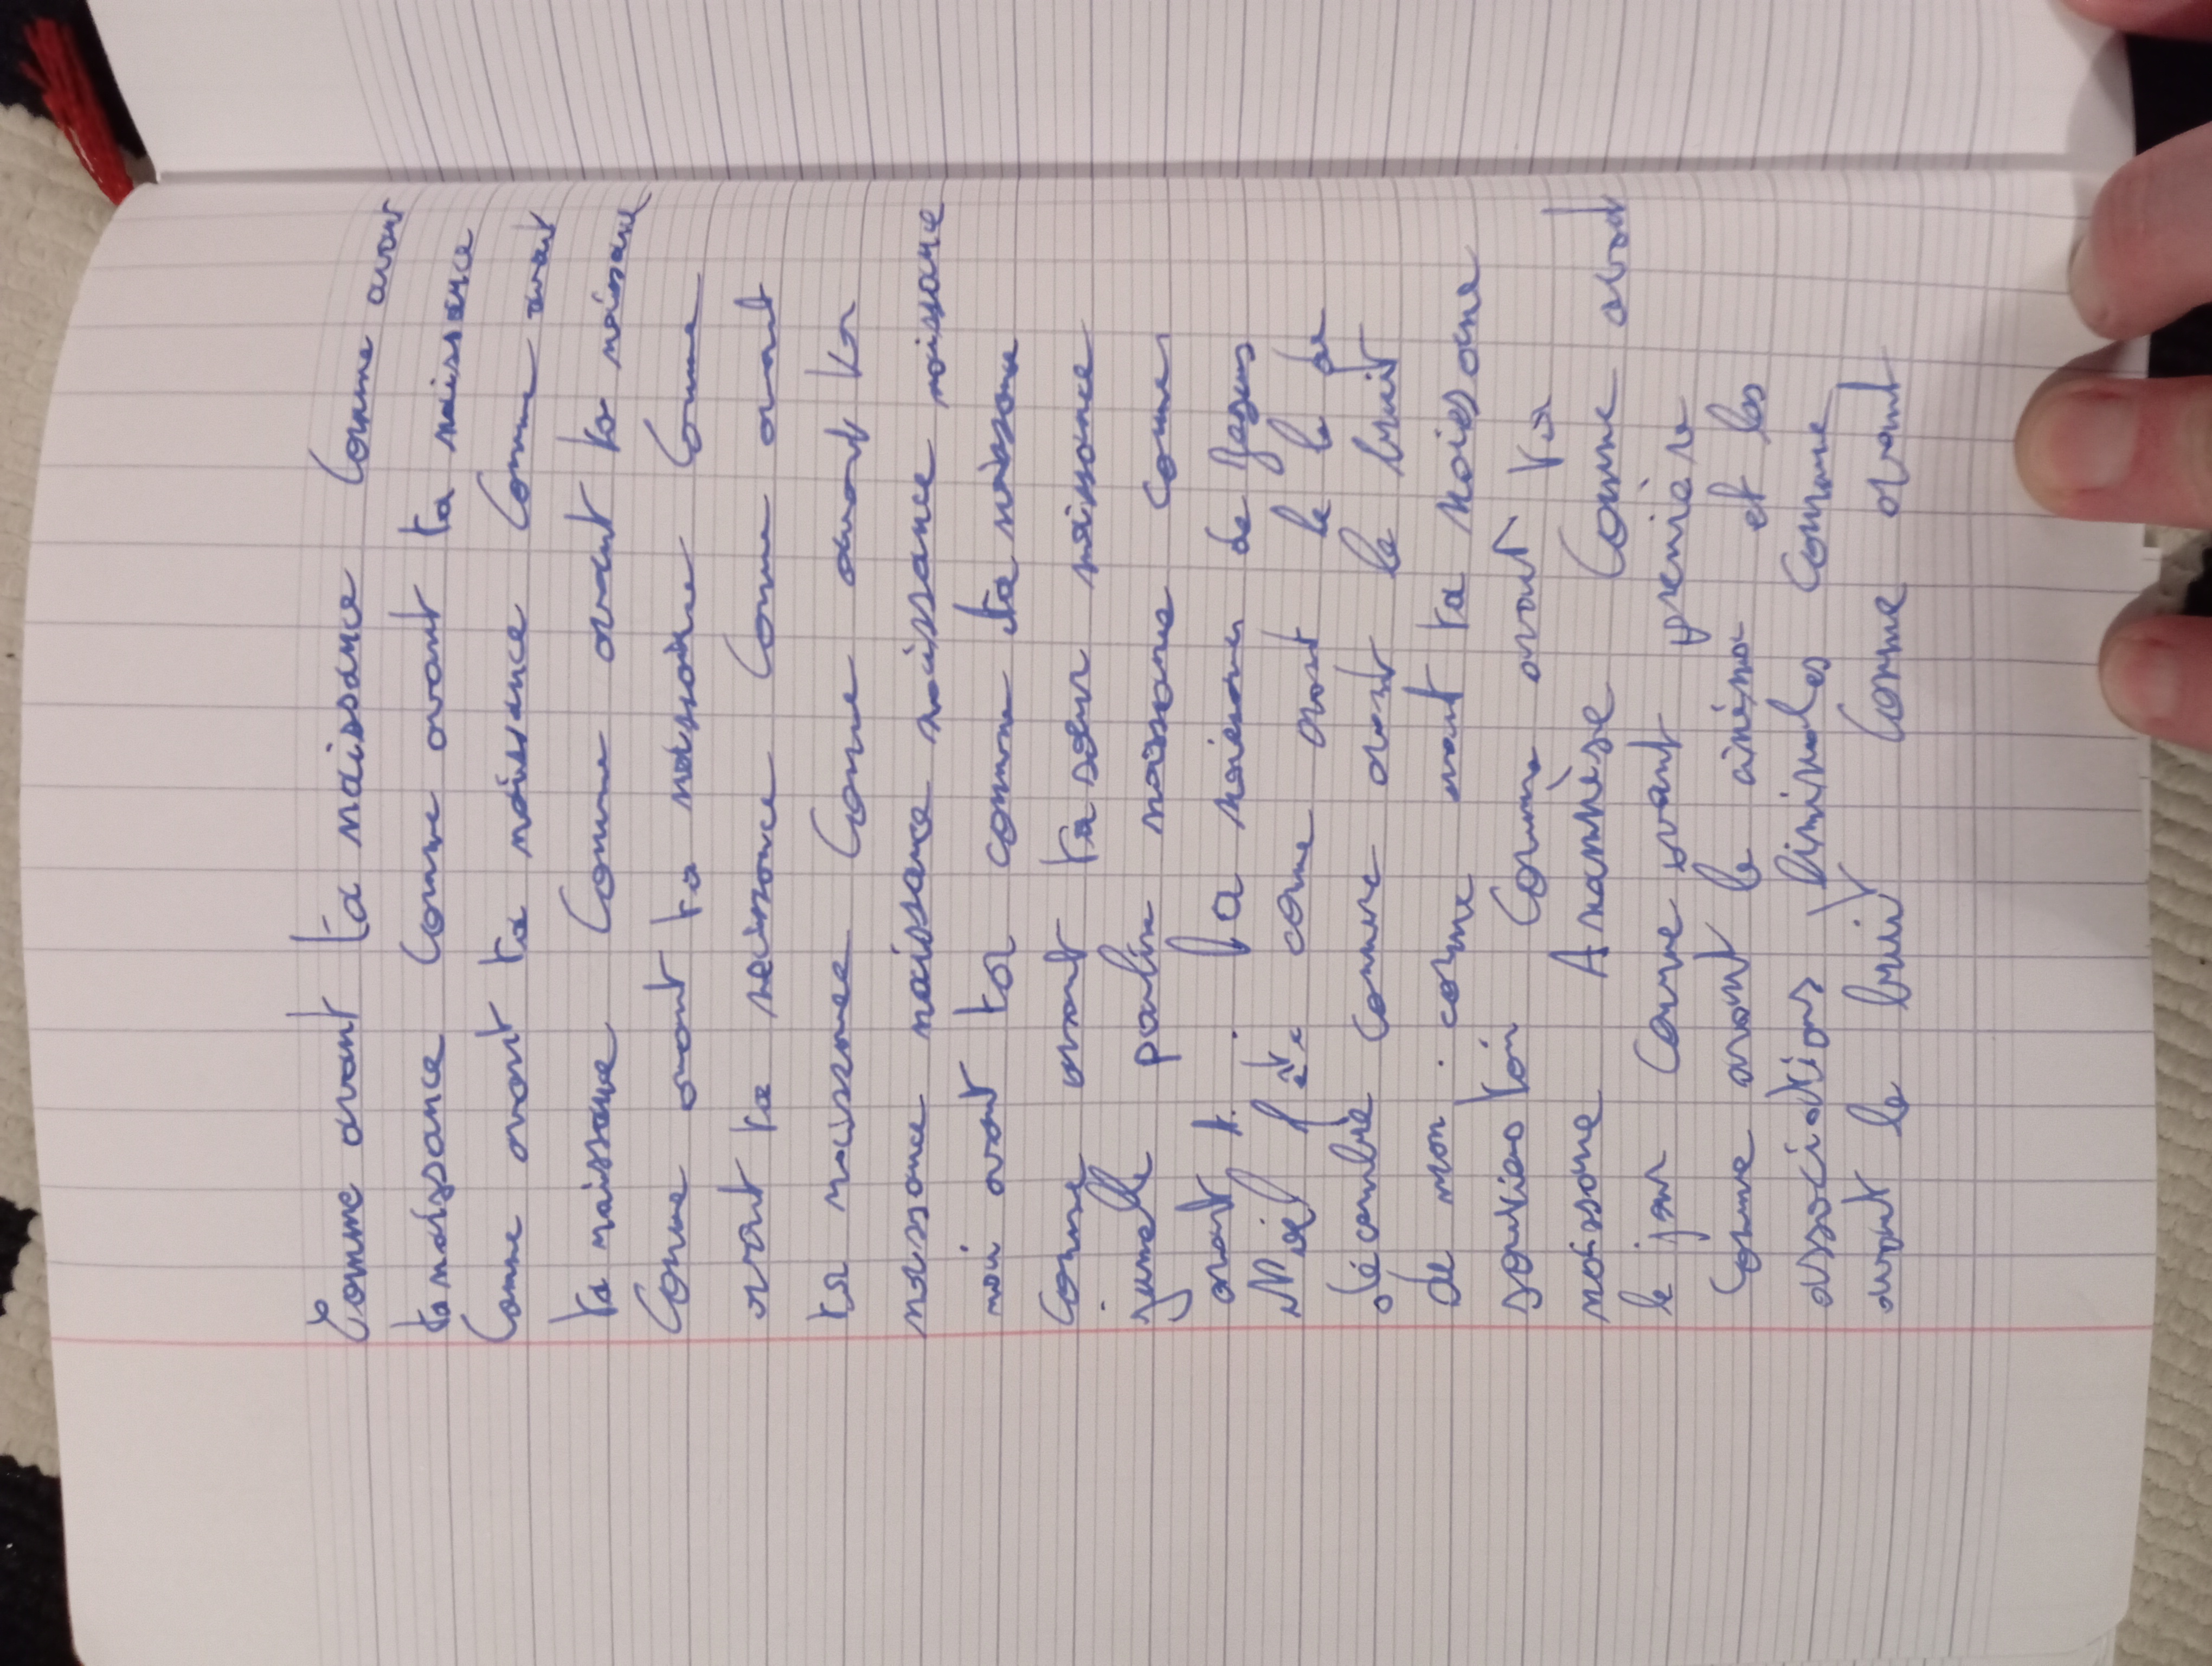 Comme avant ta naissance Comme avant
ta naissance Comme avant ta naissance
Comme avant ta naissance Comme avant
ta naissance Comme avant ta naissance
Comme avant ta naissance Comme
avant ta naissance Comme avant
ta naissance Comme avant ta
naissance naissance naissance naissance
moi avant ta comme ta naissance
comme avant ta sœur naissance
jumelle pauline naissance comme
avant t. . la naissance de Jesus
Noël fête comme avant le le de
décembre comme avant le bruit
de mon . comme avant ta naissance
souviens toi Comme avant ta
naissance Anamnèse Comme avant
le jour Comme avant première
Comme avant le cinéma et les
associations liminales Comme
avant le bruit Comme avant